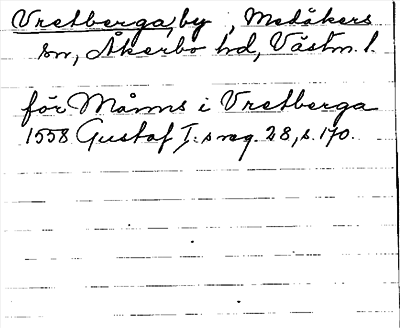 Vretberga, by, Medåkers
sn, Åkerbo hd, Västm. l.
för Måns i Vretberga
1558 Gustaf I:s reg. 28, s. 170.